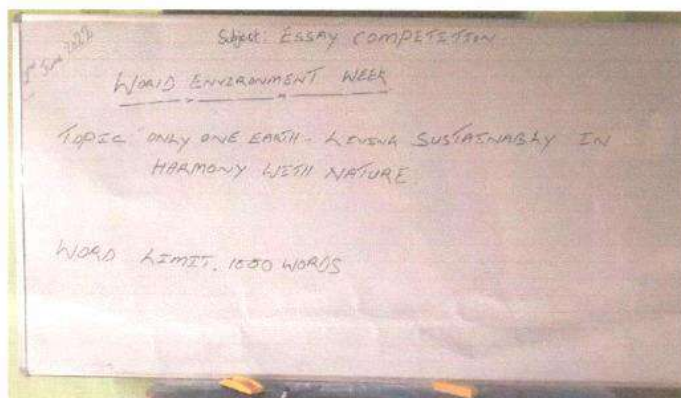 June 2022
Subject: ESSAY COMPETITION
WORLD ENVIRONMENT WEEK
TOPIC ONLY ONE EARTH - LIVING SUSTAINABLY IN
HARMONY WITH NATURE
WORD LIMIT. 1000 WORDS